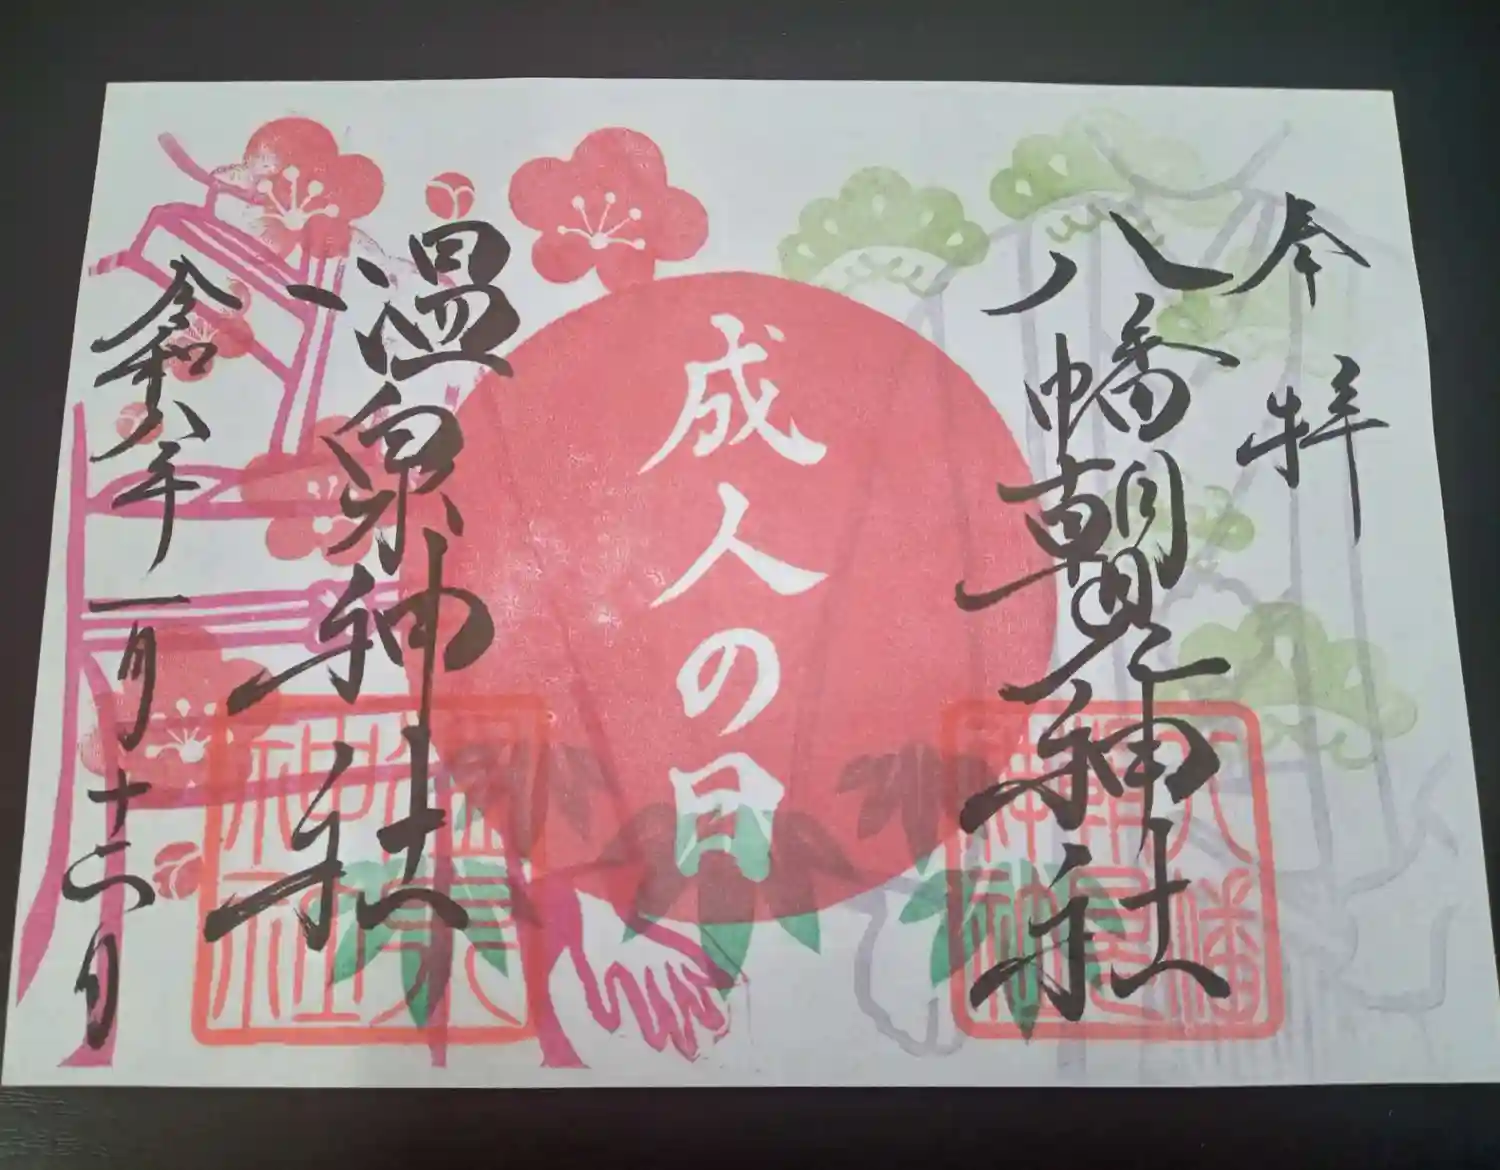 奉拝
八幡朝見神社
八幡
朝見
神社
成人の日
温泉神社
温泉
神社
令和八年一月十二日